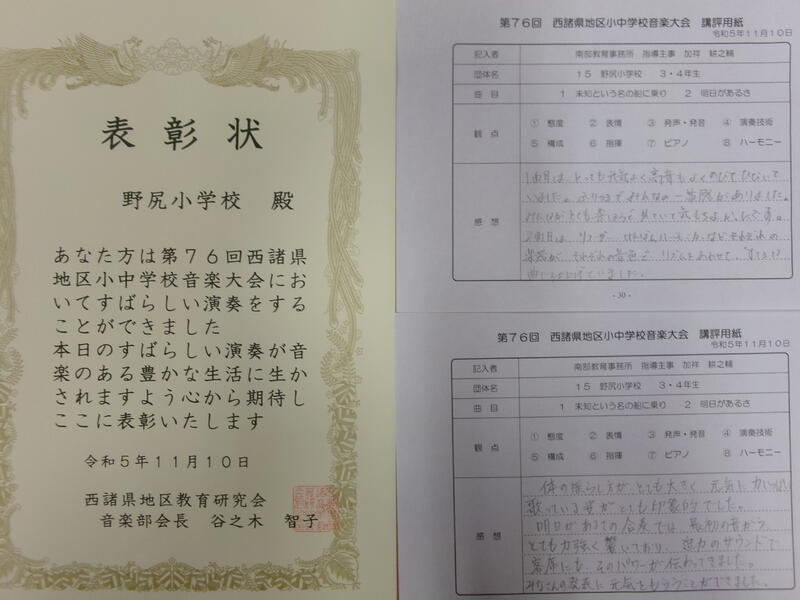 表彰状
野尻小学校 殿
あなた方は第76回西諸県
地区小中学校音楽大会にお
いてすばらしい演奏をする
ことができました
本日のすばらしい演奏が音
楽のある豊かな生活に生か
されますよう心から期待し
ここに表彰いたします
令和5年11月10日
西諸県地区教育研究会
音楽部会長 谷之木 智子
第76回 西諸県地区小中学校音楽大会 講評用紙
令和5年11月10日
記入者 南部教育事務所 指導主事 加祥 耕之輔
団体名 15 野尻小学校 3・4年生
曲目 1 未知という名の船に乗り 2 明日があるさ
観点 ① 態度 ② 表情 ③ 発声・発音 ④ 演奏技術
⑤ 構成 ⑥ 指揮 ⑦ ピアノ ⑧ ハーモニー
感想
1曲目は、とっても元気よく高音もよくのびてひびいて
いました。ふりつきでみんなの一体感がありました。
2曲目は、
それぞれの音色で リズムをあわせて、
曲にしあげていました。
- 30 -
第76回 西諸県地区小中学校音楽大会 講評用紙
令和5年11月10日
記入者 南部教育事務所 指導主事 加祥 耕之輔
団体名 15 野尻小学校 3・4年生
曲目 1 未知という名の船に乗り 2 明日があるさ
観点 ① 態度 ② 表情 ③ 発声・発音 ④ 演奏技術
⑤ 構成 ⑥ 指揮 ⑦ ピアノ ⑧ ハーモニー
感想
体の揺らし方が、とても大きく、元気に力いっぱい
歌っている姿がとても印象的でした。
明日があるさの合奏では、最初の音から
とても力強く響いており、迫力のサウンドで
客席にも、そのパワーが伝わってきました。
みなさんの発表に元気をもらうことができました。